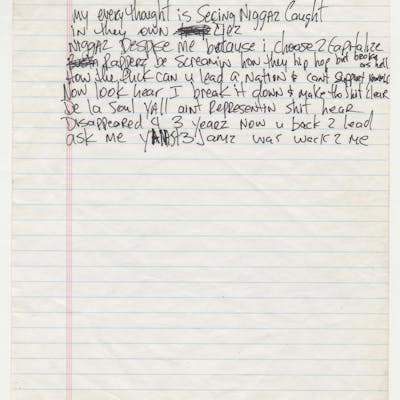 my every thought is Seeing Niggaz Caught
in they own Liez
Niggaz Despise me because i choose 2 Capitalize
Rapperz be Screamin how they hip hop but broke as hell
How the Fuck can u lead a Nation & cant support yourself
Now look hear I break it down & make the shit clear
De la Soul yall aint Representin shit hear
Disappeared 4 3 yearz Now u back 2 lead
ask me ya last 3 Jamz was weak 2 me